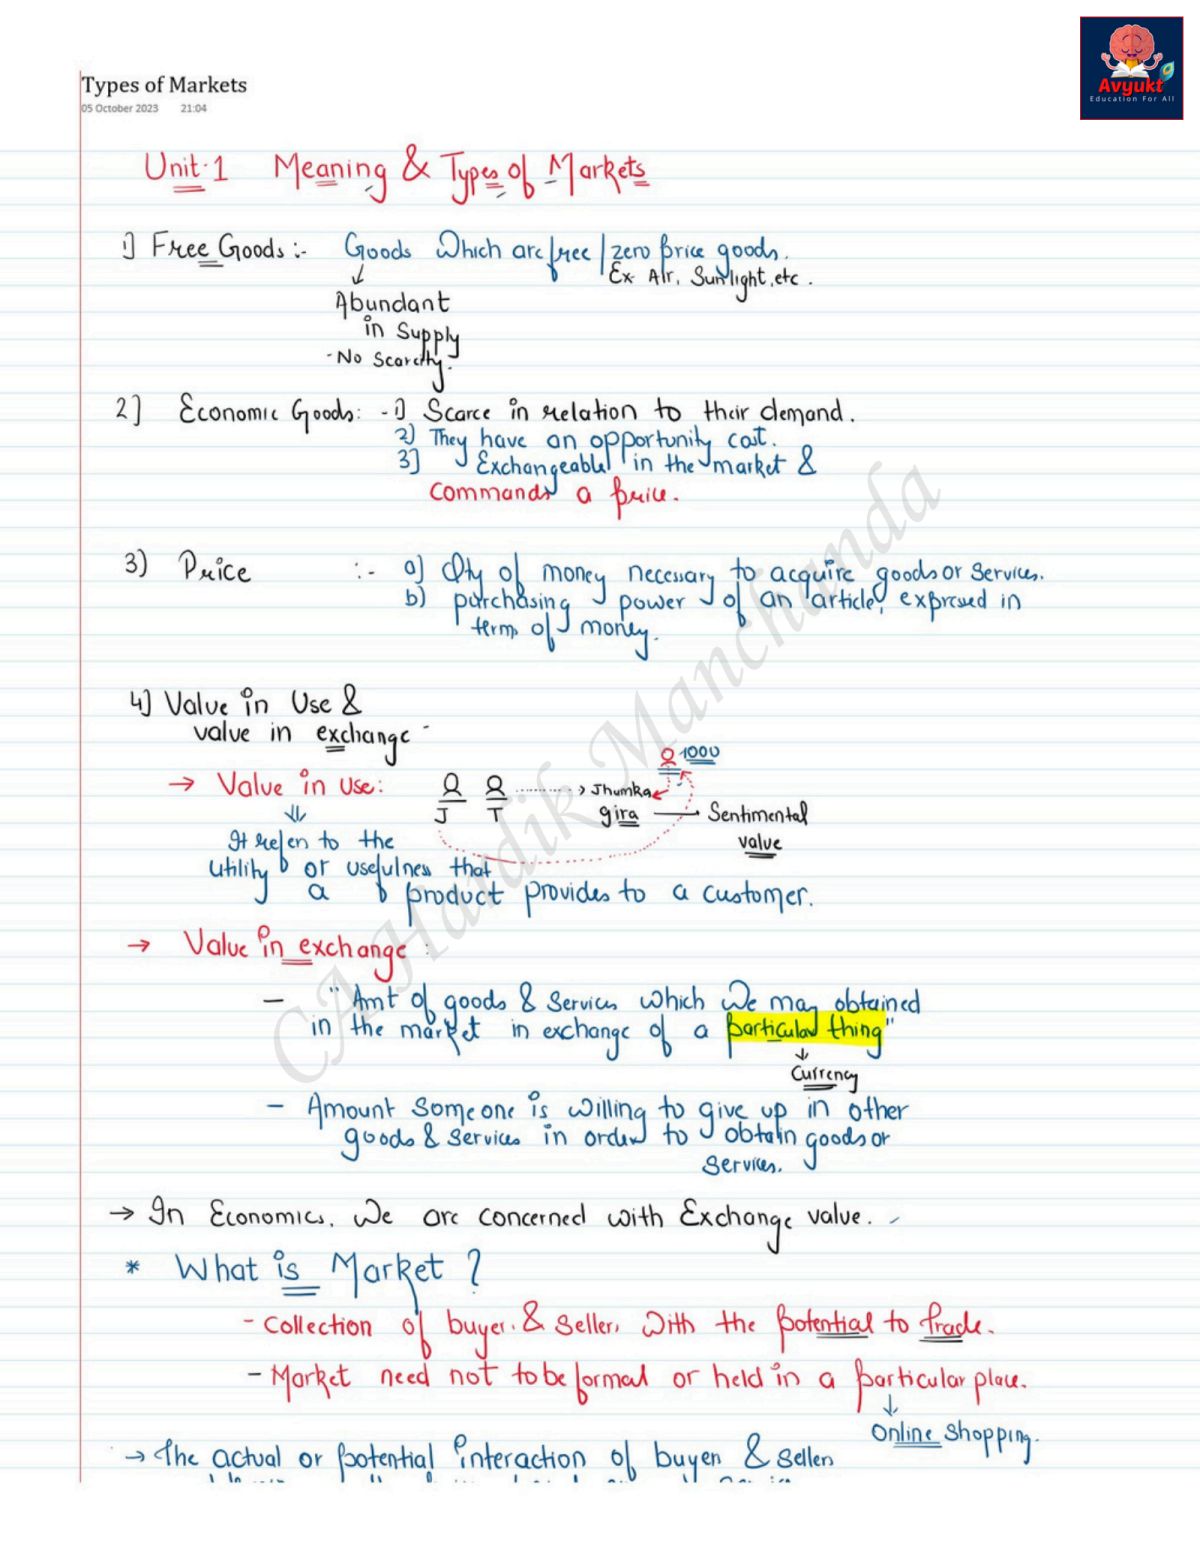 Avyukt
Education For All
Types of Markets
05 October 2023 21:04
Unit-1 Meaning & Types of Markets
1) Free Goods :- Goods Which are free / zero price goods.
Ex Air, Sunlight, etc.
Abundant
in Supply
- No Scarcity.
2] Economic Goods: - 1) Scarce in relation to their demand.
2) They have an opportunity cost.
3] Exchangeable in the market &
Commands a price.
3) Price :- a) Qty of money necessary to acquire goods or services.
b) purchasing power of an article, expressed in
terms of money.
4] Value in Use &
value in exchange -
1000
→ Value in use:
J T → Jhumka
gira — Sentimental
value
It refers to the
utility or usefulness that
a product provides to a customer.
→ Value in exchange:
- "Amt of goods & services which we may obtained
in the market in exchange of a particular thing"
Currency
- Amount someone is willing to give up in other
goods & services in order to obtain goods or
services.
→ In Economics, We are concerned with Exchange value.
* What is Market?
- Collection of buyers & sellers with the potential to trade.
- Market need not to be formal or held in a particular place.
Online shopping.
→ The actual or potential interaction of buyers & sellers
CA Hardik Manchanda